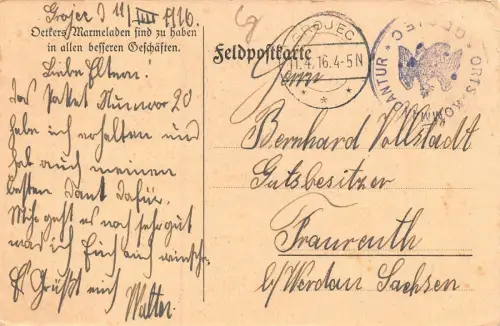 Grojec d 11/IIII 1916.
Oetkers Marmeladen sind zu haben
in allen besseren Geschäften.
Liebe Eltern!
das Paket Nummer 20
habe ich erhalten und
hab auch meinen
besten Dank dafür.
Mihr geht es noch sehr gut
was ich Euch auch wünsche.
Es Grüßt euch
Walter
Feldpostkarte
GROJEC
11.4.16.4-5N
ORTS-KOMMANDANTUR
GROJEC
Herrn
Bernhard Vollstädt
Gutsbesitzer
Fraureuth
b/Werdau Sachsen